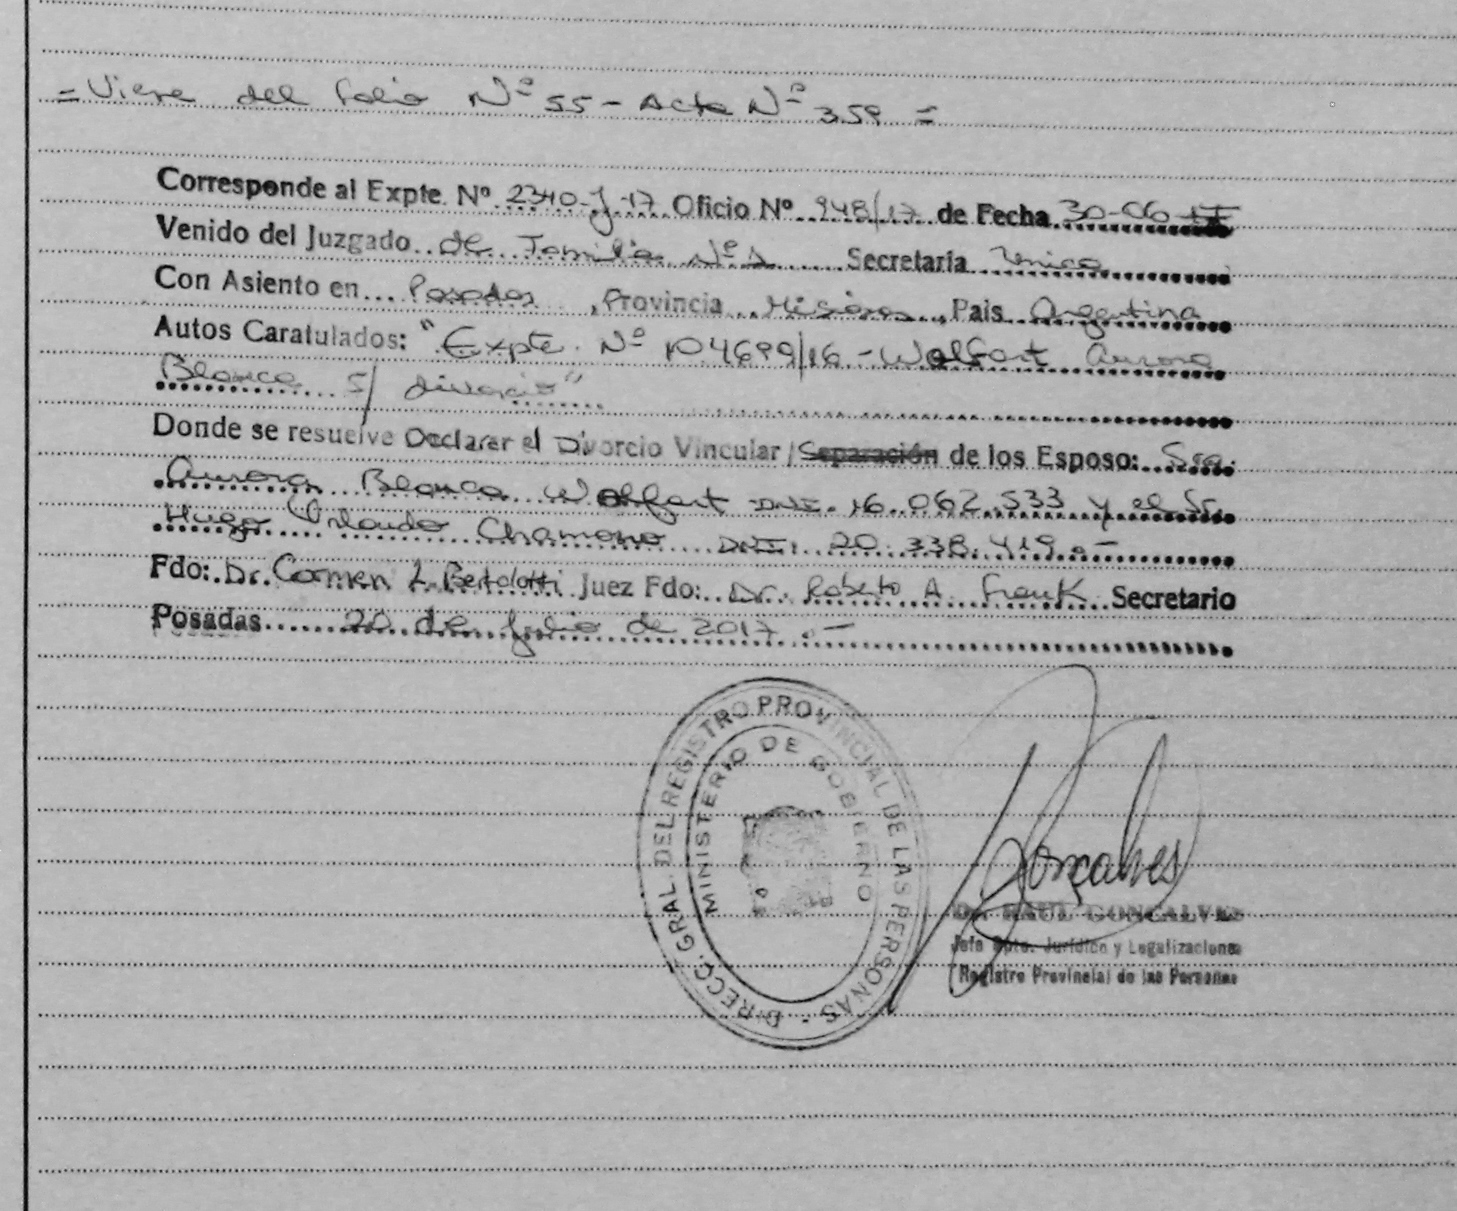 = Viene del folio Nº 55 - Acta Nº 359 =
Corresponde al Expte. Nº 2340-J-17 Oficio Nº 948/17 de Fecha 30-06-17
Venido del Juzgado de Familia Nº 1 Secretaria Unica
Con Asiento en Posadas, Provincia Misiones, Pais Argentina
Autos Caratulados: "Expte. Nº 104699/16 - Wolfart Aurora
Blanca S/ divorcio"
Donde se resuelve Declarar el Divorcio Vincular/Separación de los Esposo: Sra.
Aurora Blanca Wolfart DNI. 16.062.533 y el Sr.
Hugo Orlando Chamorro DNI. 20.338.419.-
Fdo: Dr. Carmen L. Bertolotti Juez Fdo: Dr. Roberto A. Frank Secretario
Posadas 20 de Julio de 2017.-
DIRECC. GRAL. DEL REGISTRO PROVINCIAL DE LAS PERSONAS -
MINISTERIO DE GOBIERNO
Goncalves
Dr. RAUL GONCALVES
Jefe Dpto. Jurídico y Legalizaciones
Registro Provincial de las Personas